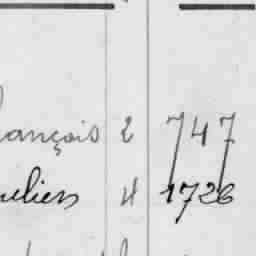 ançois 2 747
uliers 4 1726